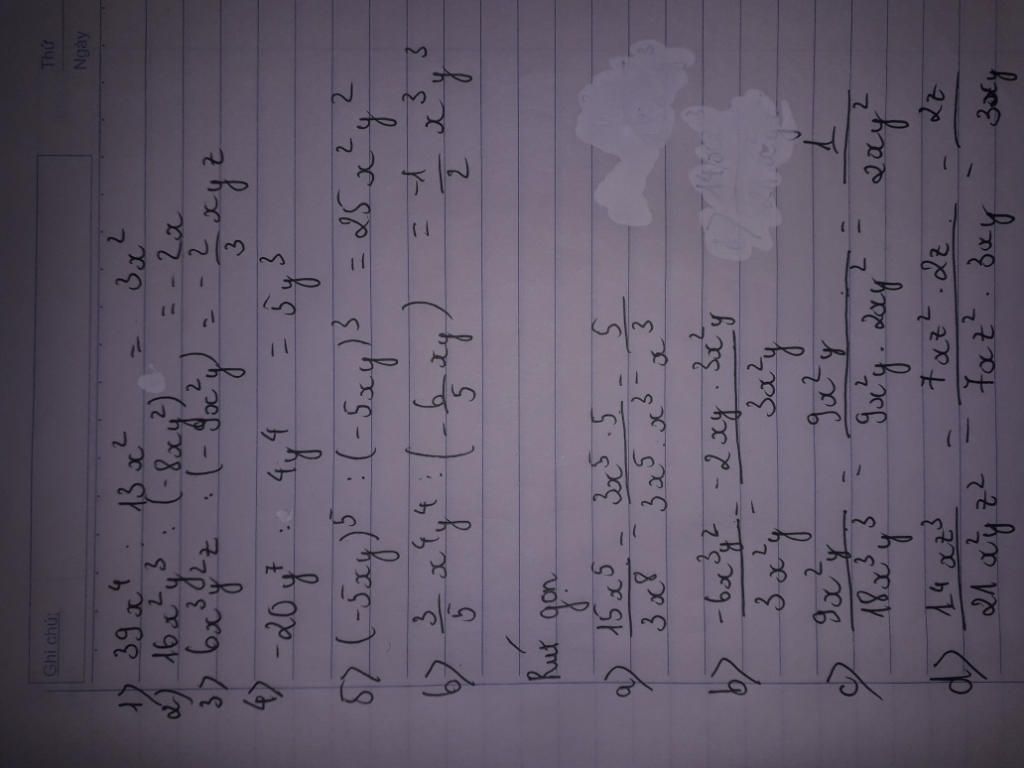 Thứ
Ngày
Ghi chú:
1) 39x⁴ : 13x² = 3x²
2) 16x²y³ : (-8xy²) = -2x
3) 6x³y²z : (-9x²y) = -2/3 xyz
4) -20y⁷ : 4y⁴ = 5y³
5) (-5xy)⁵ : (-5xy)³ = 25x²y²
6) 3/5 x⁴y⁴ : (-6/5 xy) = -1/2 x³y³
Rút gọn
a) 15x⁵/3x⁸ = 3x⁵.5/3x⁵.x³ = 5/x³
b) -6x³y²/3x²y = -2xy.3x²y/3x²y
c) 9x²y/18x³y³ = 9x²y/9x²y.2xy² = 1/2xy²
d) 14xz³/21x²yz² = 7xz².2z/7xz².3xy = 2z/3xy